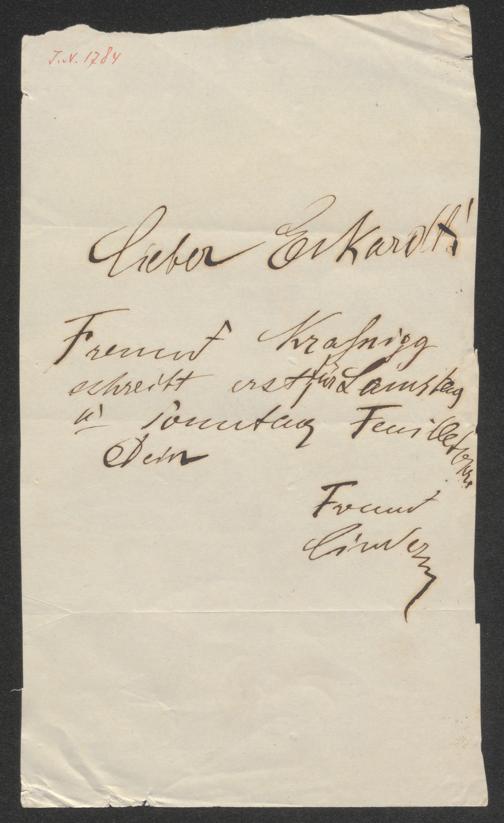 J.N. 1784
Lieber Eckardt!
Freund Kraßnigg
schreibt erst für Samstag
u Sonntag Feuilletons
Dein
Freund